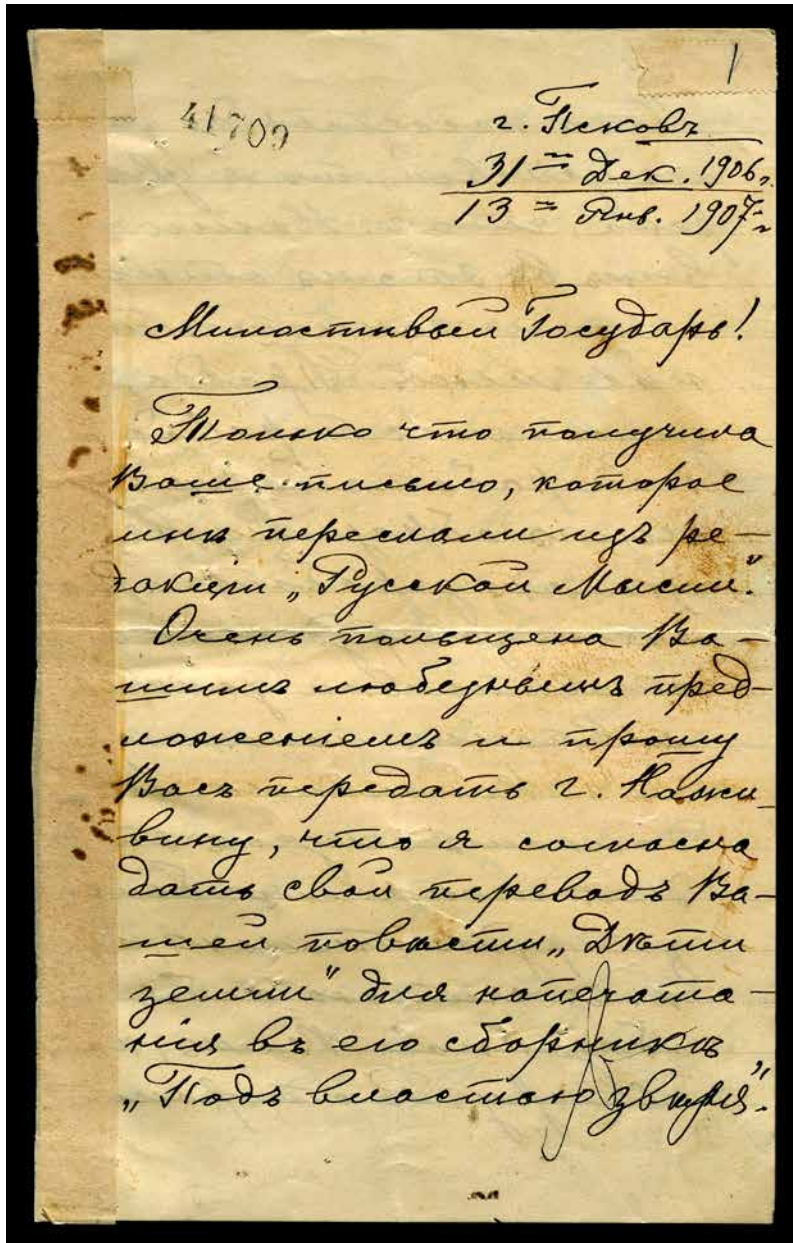 1
41709
г. Псковъ
31 = Дек. 1906 г.
13 = Янв. 1907 г.
Милостивый Государь!
Только что получила
Ваше письмо, которое
мнѣ переслали изъ ре-
дакціи „Русской Мысли“.
Очень польщена Ва-
шимъ любезнымъ пред-
ложеніемъ и прошу
Васъ передать г. Нажи-
вину, что я согласна
дать свой переводъ Ва-
шей повѣсти „Дѣти
земли“ для напечата-
нія въ его сборникѣ
„Подъ властью звѣря“.